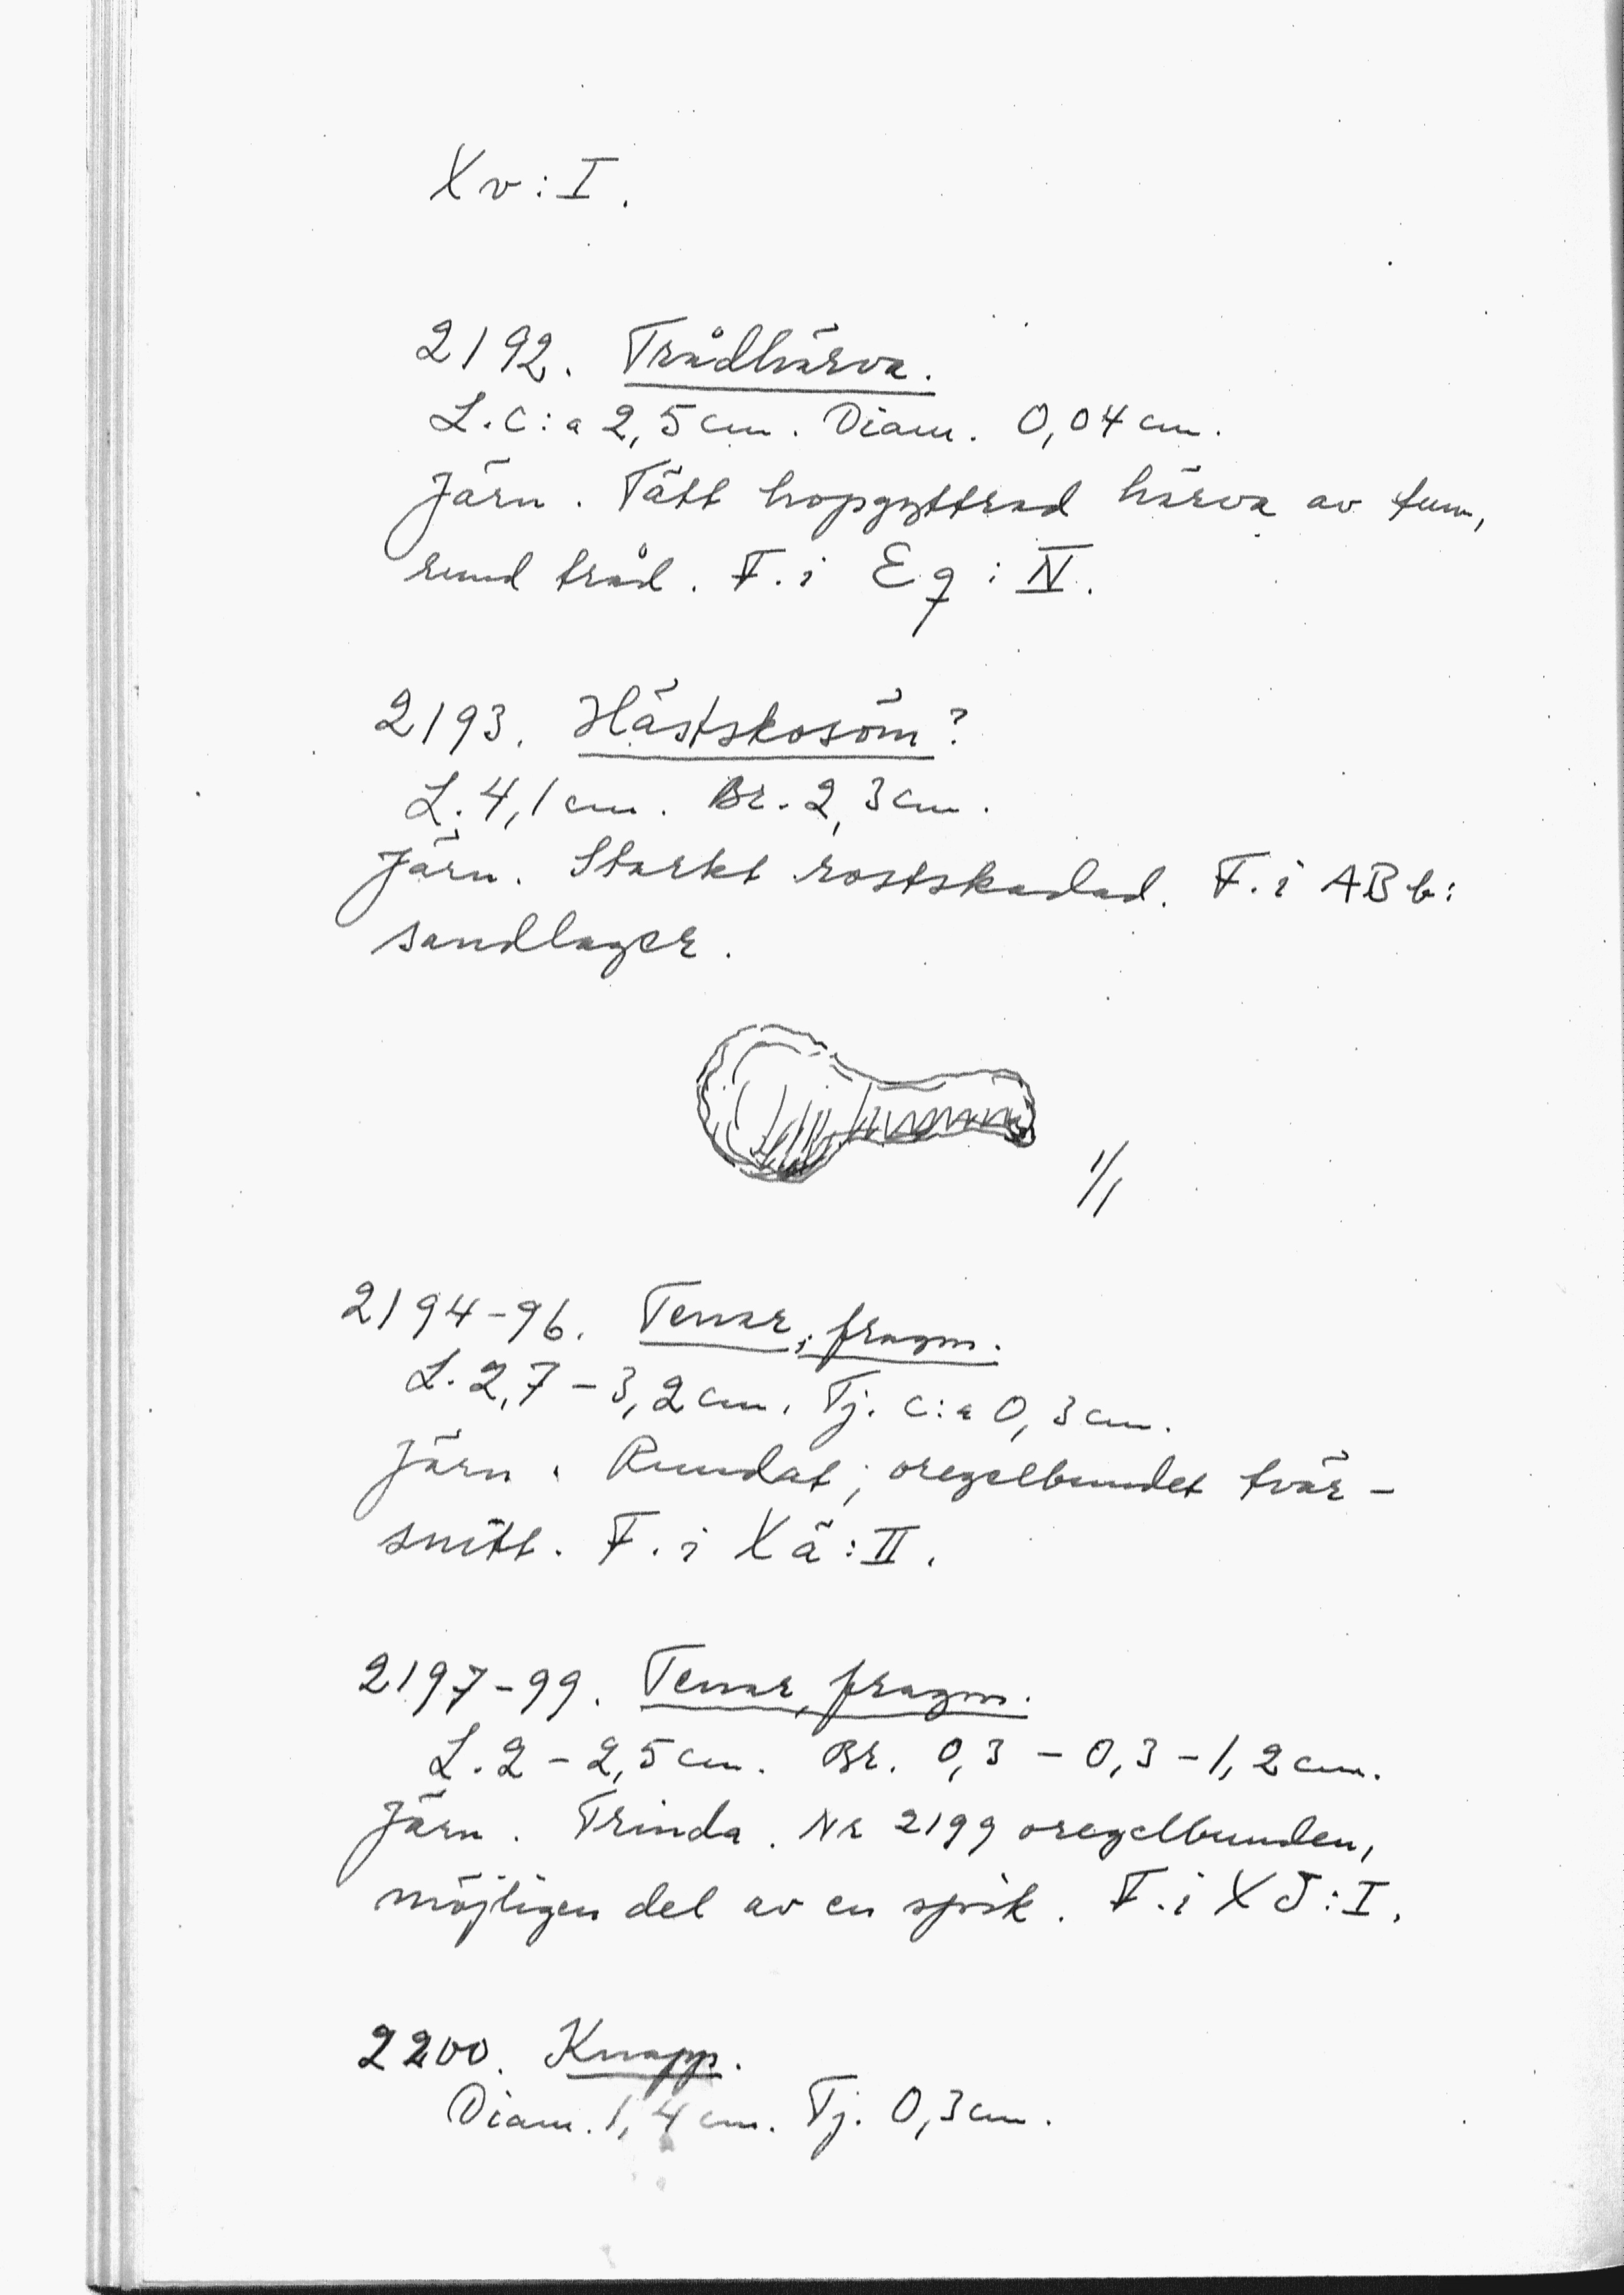 Xv: I.
2192. Trådhärva.
L. c:a 2,5 cm. Diam. 0,04 cm.
Järn. Tätt hopgyttrad härva av tunn,
rund tråd. F. i Eq: IV.
2193. Hästskosöm?
L. 4,1 cm. Br. 2,3 cm.
Järn. Starkt rostskadad. F. i ABb:
sandlager.
1/1
2194-96. Tenar, fragm.
L. 2,7 - 3,2 cm. Tj. c:a 0,3 cm.
Järn. Rundat, oregelbundet tvär-
snitt. F. i Xä: II.
2197-99. Tenar, fragm.
L. 2 - 2,5 cm. Br. 0,3 - 0,3 - 1,2 cm.
Järn. Trinda. Nr 2199 oregelbunden,
möjligen del av en spik. F. i XJ: I.
2200. Knapp.
Diam. 1,4 cm. Tj. 0,3 cm.